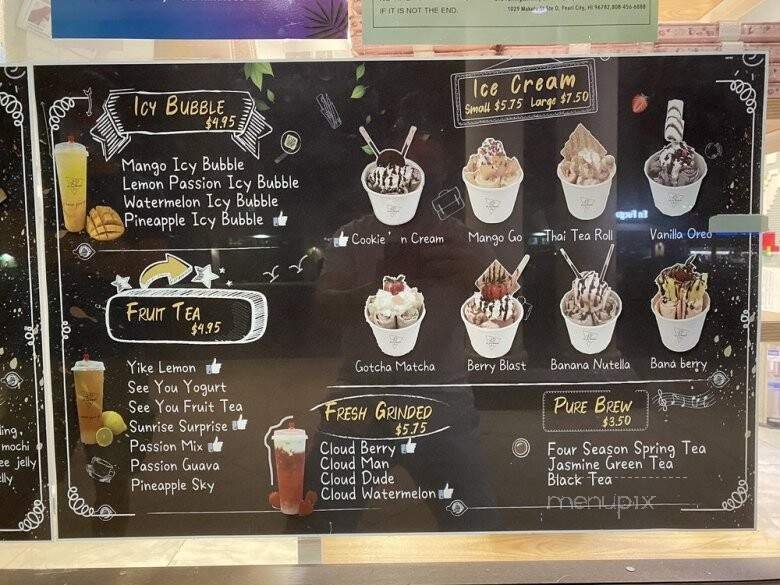 IF IT IS NOT THE END.
Pearl City, HI 96782,808-456-6888
ICY BUBBLE
$4.95
Mango Icy Bubble
Lemon Passion Icy Bubble
Watermelon Icy Bubble
Pineapple Icy Bubble
FRUIT TEA
$4.95
Yike Lemon
See You Yogurt
See You Fruit Tea
Sunrise Surprise
Passion Mix
Passion Guava
Pineapple Sky
Ice Cream
Small $5.75 Large $7.50
Cookie'n Cream
Mango Go
Thai Tea Roll
Vanilla Oreo
Gotcha Matcha
Berry Blast
Banana Nutella
Bana berry
FRESH GRINDED
$5.75
Cloud Berry
Cloud Man
Cloud Dude
Cloud Watermelon
PURE BREW
$3.50
Four Season Spring Tea
Jasmine Green Tea
Black Tea
menupix
mochi
jelly